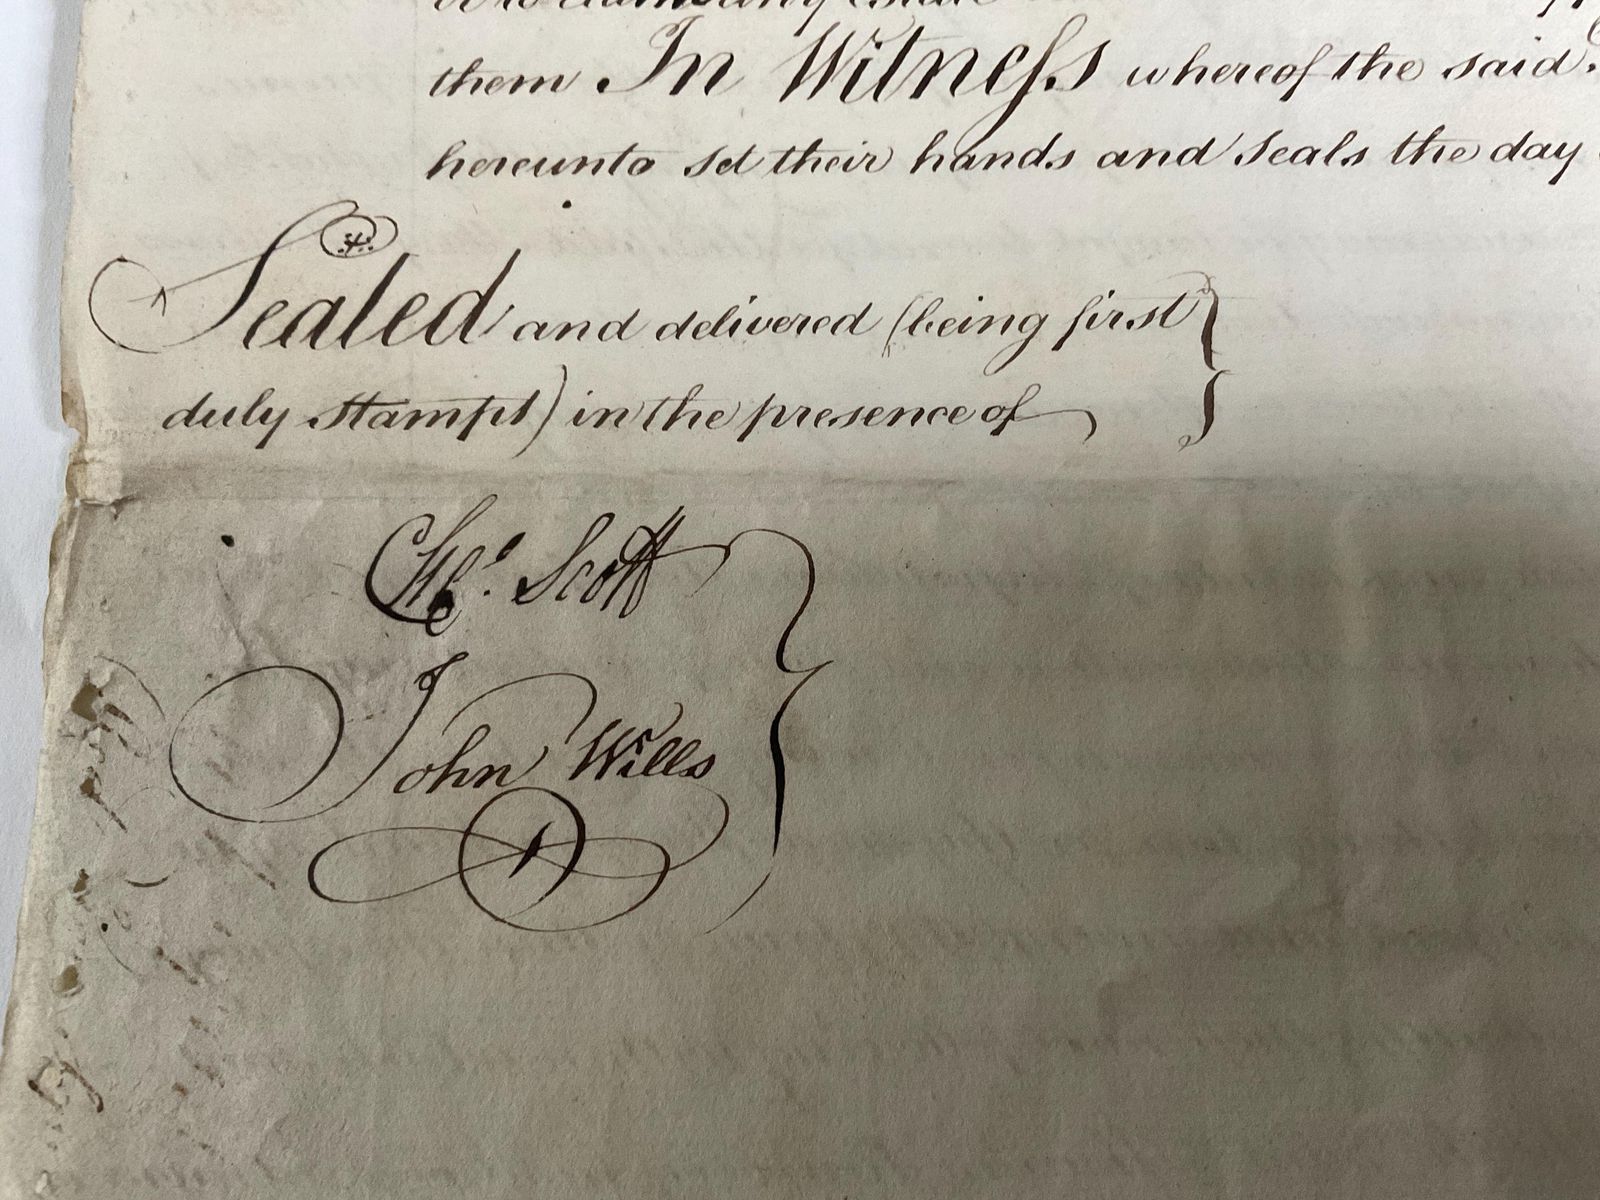 them In Witness whereof the said
hereunto set their hands and seals the day
Sealed and delivered (being first
duly stampt) in the presence of
Scott
John Wills